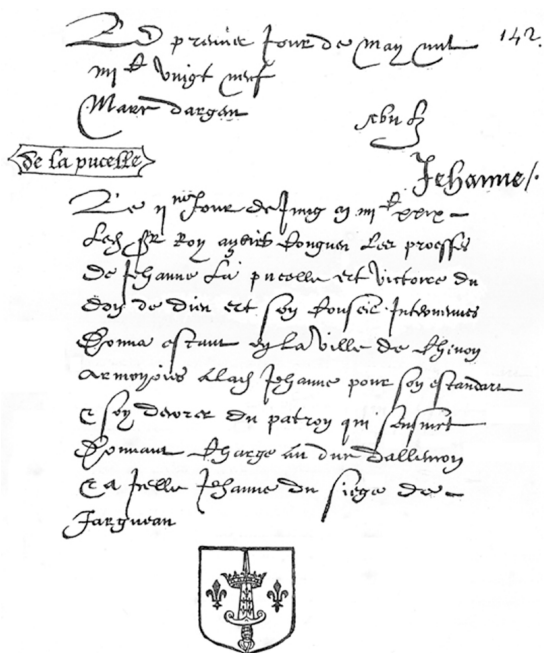 Le premier Jour de may mil 142.
iiii C vingt neuf
Marc dargan
Jehanne/.
de la pucelle
Le ii me Jour de Juing m iiii C xxix
Roy les proesses
de Jehanne La pucelle et victoires du
don de dieu et son Conseil Intervenues
donna estant en La ville de Chinon
armoyries a Jehanne pour son estandart
& soy decorer du patron qui sensuict
donnant Charge au duc dallencon
& a Icelle Jehanne du siege de
Jargueau